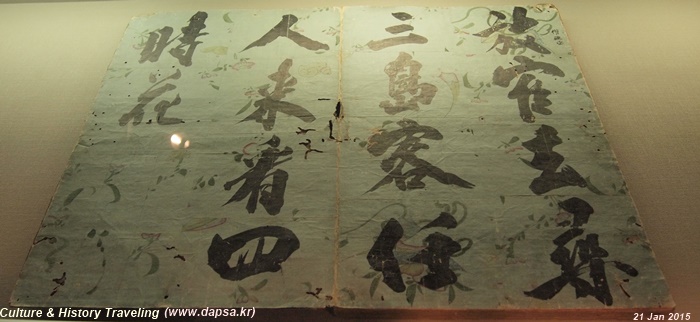 放寉去尋
三島客任
人来看四
時花
Culture & History Traveling (www.dapsa.kr)
21 Jan 2015